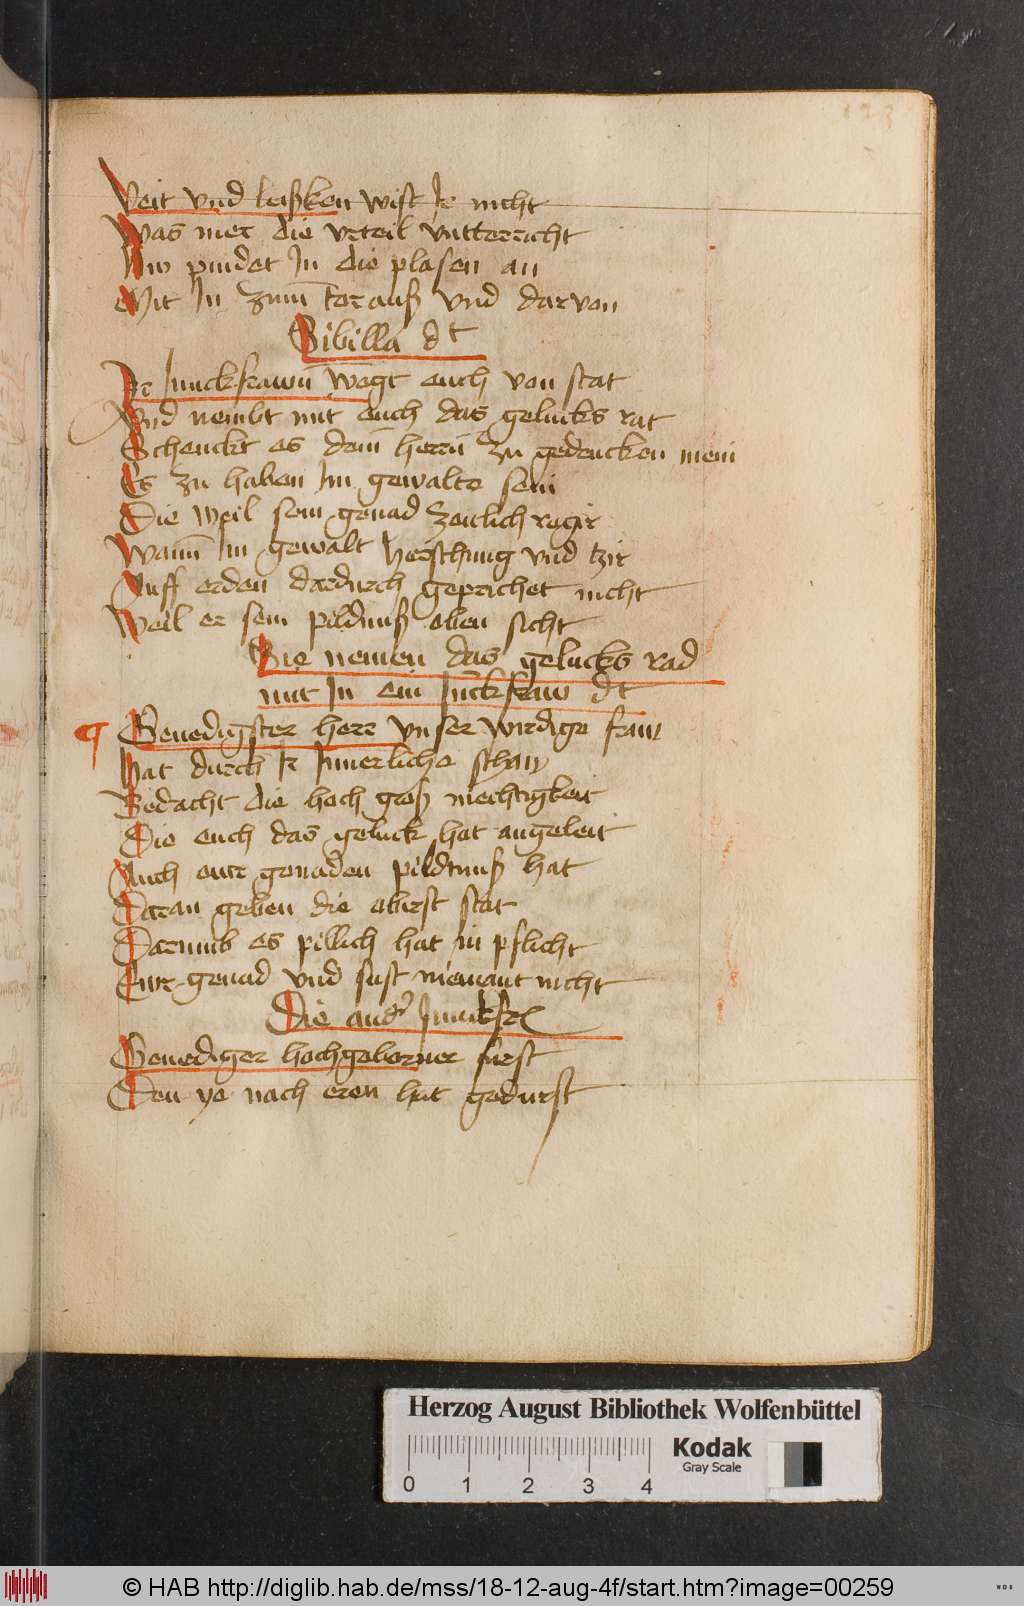 123
Veit vnd leißken wist Ir nicht
Was mer die vrteil vntterricht
Nw pindet In die plasen an
Mit In zum torauß vnd darvon
Sibilla dt
Ir Junckfrawn wegt euch von stat
Vnd nembt mit euch das gelucks rat
Schenckt es dem herrn zu gedencken mein
Es zu haben Im gewalte sein
Die weil sein genad zeitlich regir
Wann Im gewalt herschung vnd tzir
Auff erden dardurch geprichet nicht
Weil er sein pildnuß oben sicht
Sie nemen das gelucks rad
mit In ein Junckfraw dt
Genedigster herr vnser wirdige fraw
Hat durch Ir Innerliche schaw
Bedacht die hoch groß mechtigkeit
Die euch das geluck hat angeleit
Auch ewr genaden pildtnuß hat
Daran geben die oberst stat
Darumb es pillich hat in pflicht
Ewr genad vnd sust niemant nicht
Die and' Junckfr
Genediger hochgeborner furst
Den ye nach eren hat gedurst
Herzog August Bibliothek Wolfenbüttel
Kodak
Gray Scale
0 1 2 3 4
© HAB http://diglib.hab.de/mss/18-12-aug-4f/start.htm?image=00259